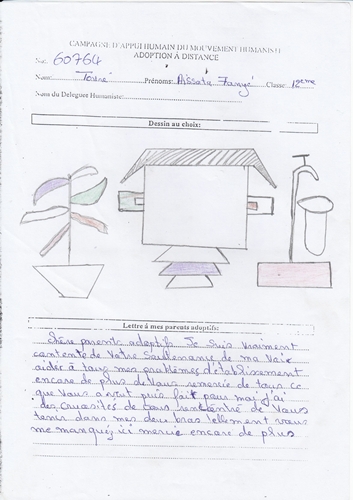 CAMPAGNE D'APPUI HUMAIN DU MOUVEMENT HUMANISTE
ADOPTION À DISTANCE
No: 60764
Nom: Touré Prénoms: Aïssata Classe: 12eme
Nom du Delegué Humaniste:
Dessin au choix:
Lettre à mes parents adoptifs:
chère parents adoptifs Je suis vraiment
contente de Votre de ma
aidér à tous mes problèmes d'établissement
encore de plus de Vous remercie de tous ce
que Vous avait puis fait pour moi j'ai
des de Vous
tenir dans mes deux bras tellement vous
me manquez ici mercie encore de plus